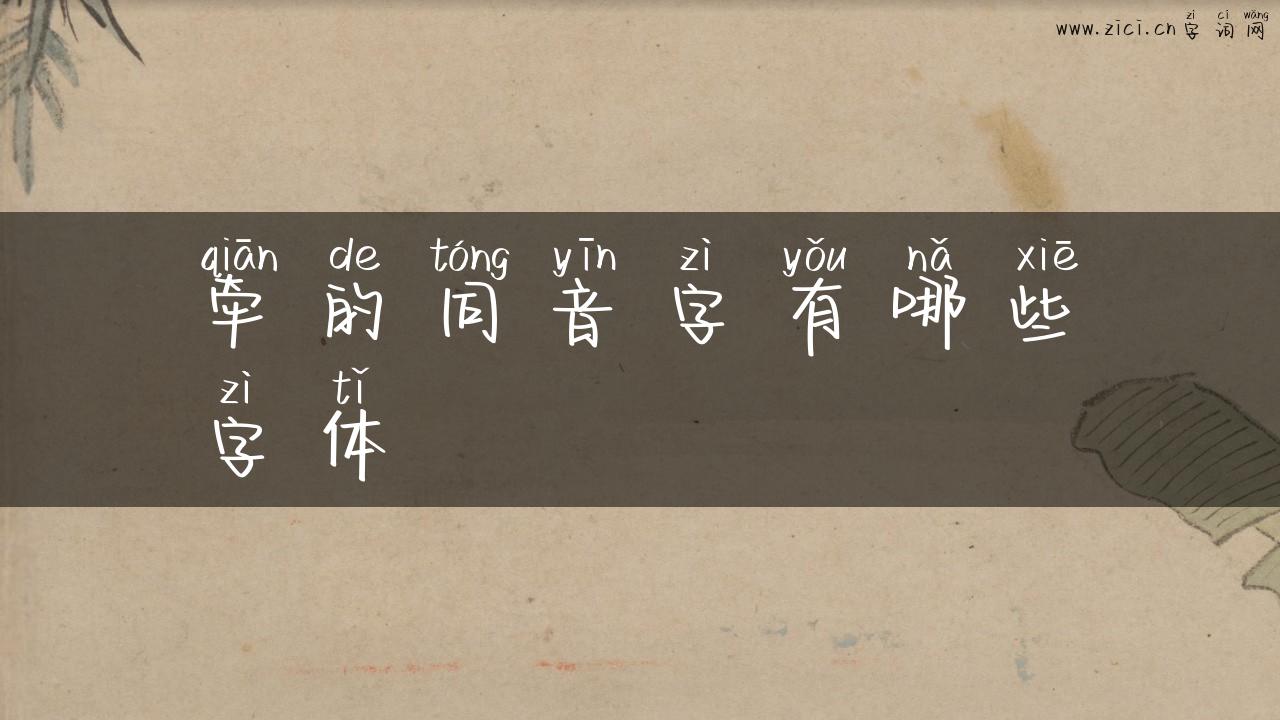 zì cí wǎng
www.zici.cn 字 词 网
qiān de tóng yīn zì yǒu nǎ xiē
牵 的 同 音 字 有 哪 些
zì tǐ
字 体